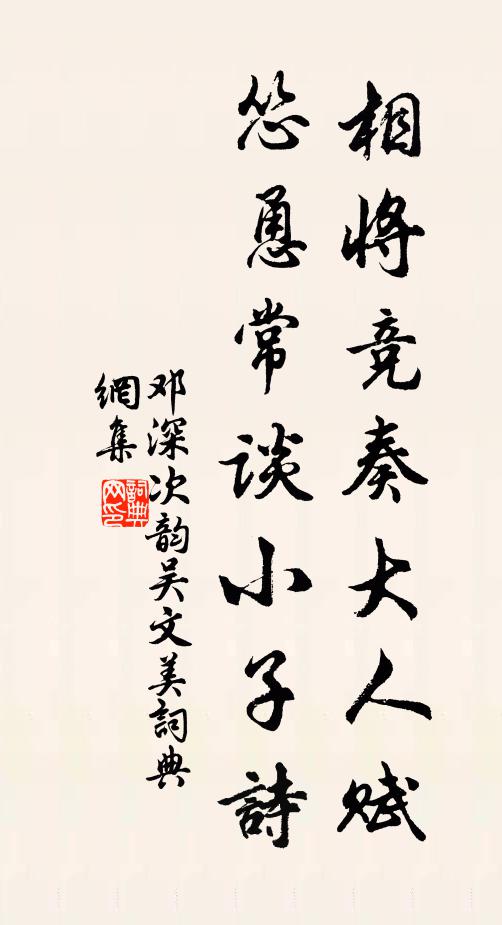 相將竞奏大人赋
怂恿常谈小子詩
邓深次韵吴文美詞典
網集
詞典
网印